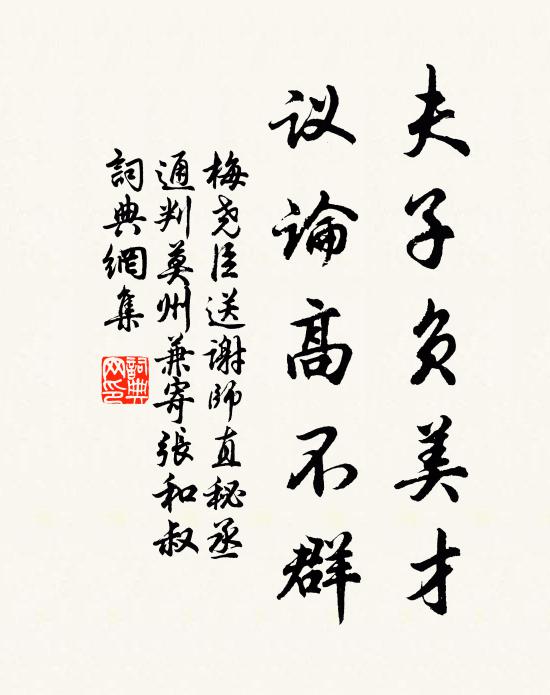 夫子负美才
议論高不群
梅尧臣送谢師直秘丞
通判莫州兼寄張和叔
詞典網集
詞典網印